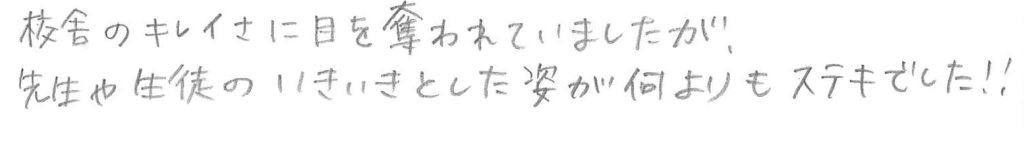 校舎のキレイさに目を奪われていましたが、
先生や生徒のいきいきとした姿が何よりもステキでした!!